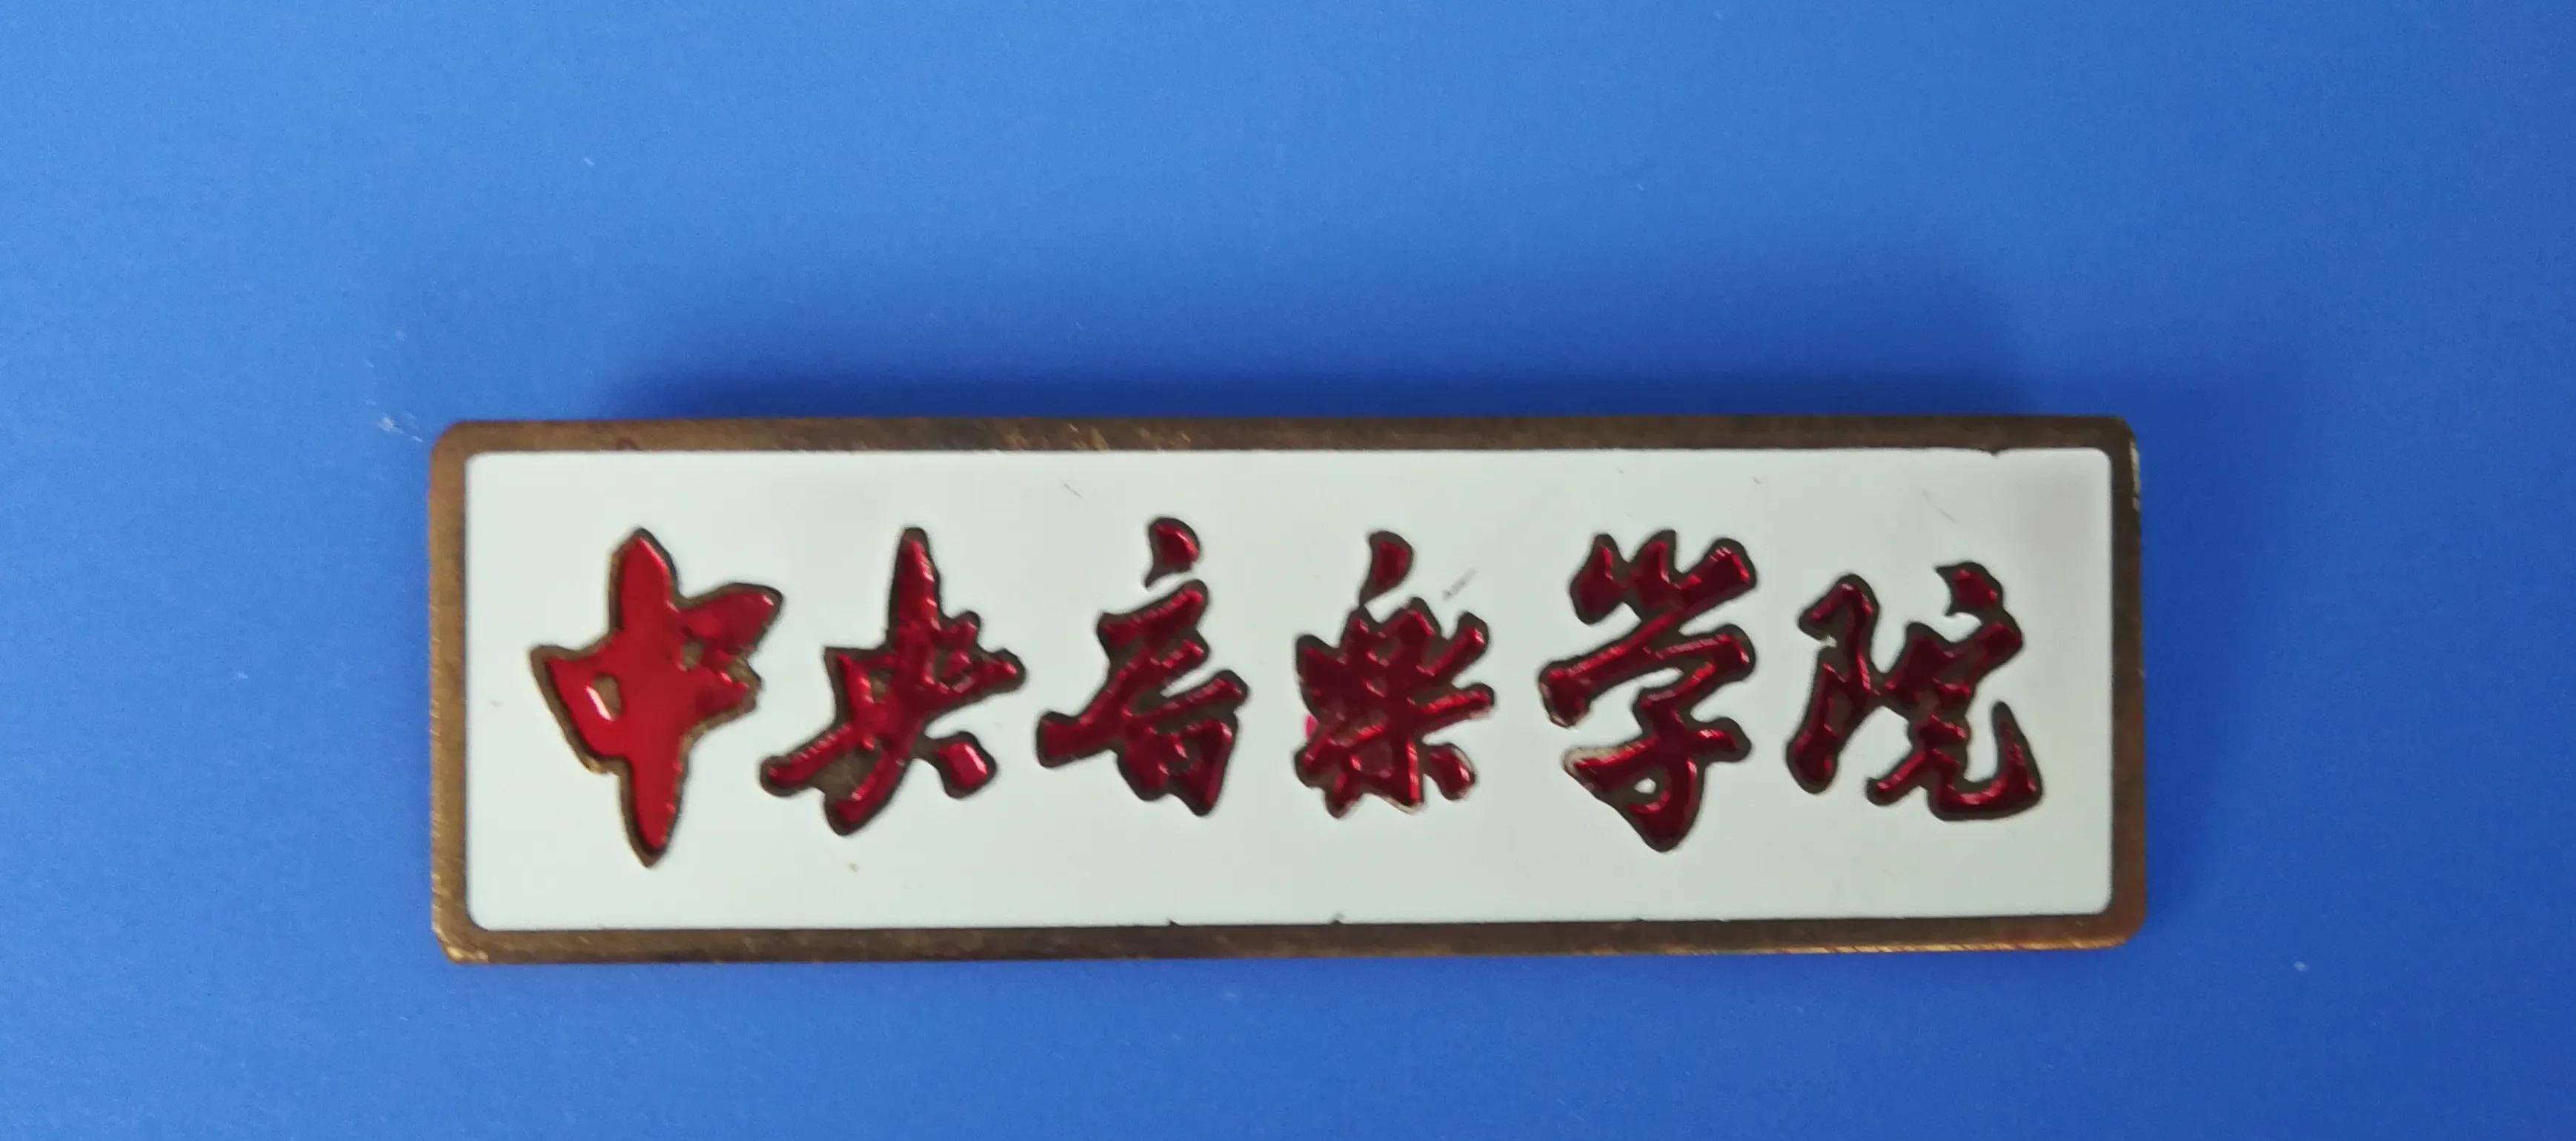 中央音樂学院